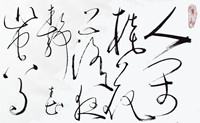 人闲
桂花
落夜
静春
山空